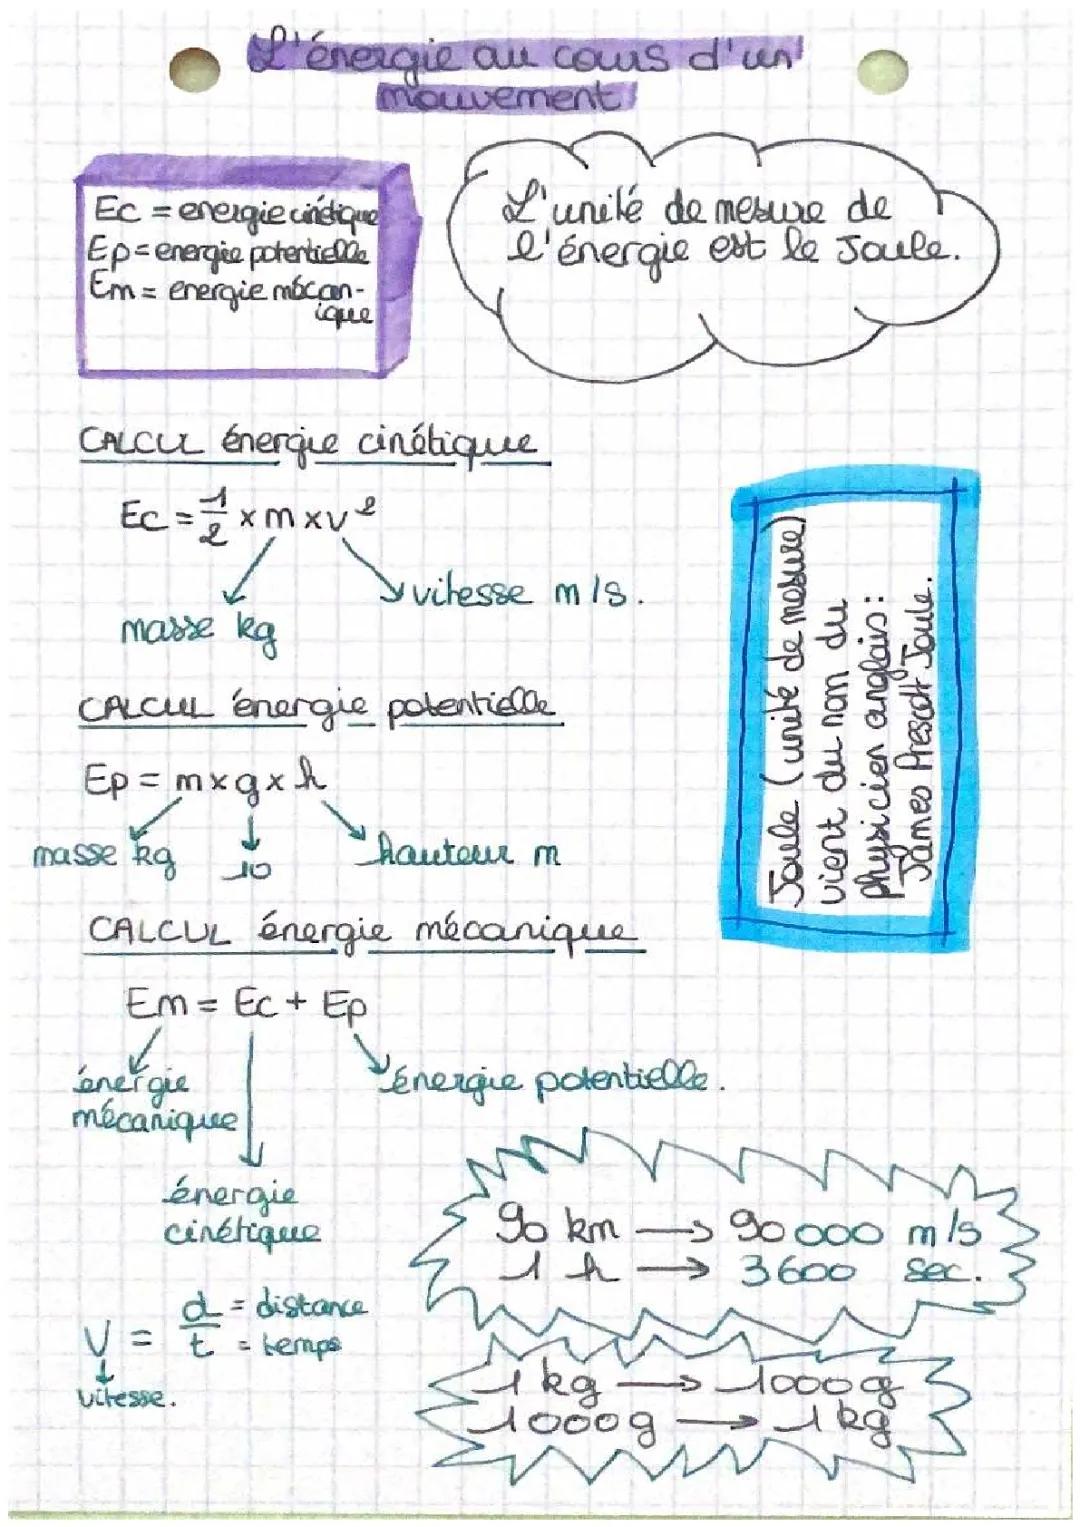 L'énergie au cours d'un
mouvement
Ec = energie cinétique
Ep = energie potentielle
Em = energie mécan-
ique
L'unité de mesure de
l'énergie est le Joule.
CALCUL énergie cinétique
Ec = 1/2 x m x v²
vitesse m/s.
masse kg
Joule (unité de mesure)
vient du nom du
physicien anglais :
James Prescott Joule.
CALCUL énergie potentielle
Ep = m x g x h
masse kg
10
hauteur m
CALCUL énergie mécanique
Em = Ec + Ep
énergie
mécanique
énergie potentielle.
énergie
cinétique
90 km → 90 000 m/s
1 h → 3600 sec.
V = d/t
d = distance
t = temps
vitesse.
1 kg → 1000 g
1000 g → 1 kg